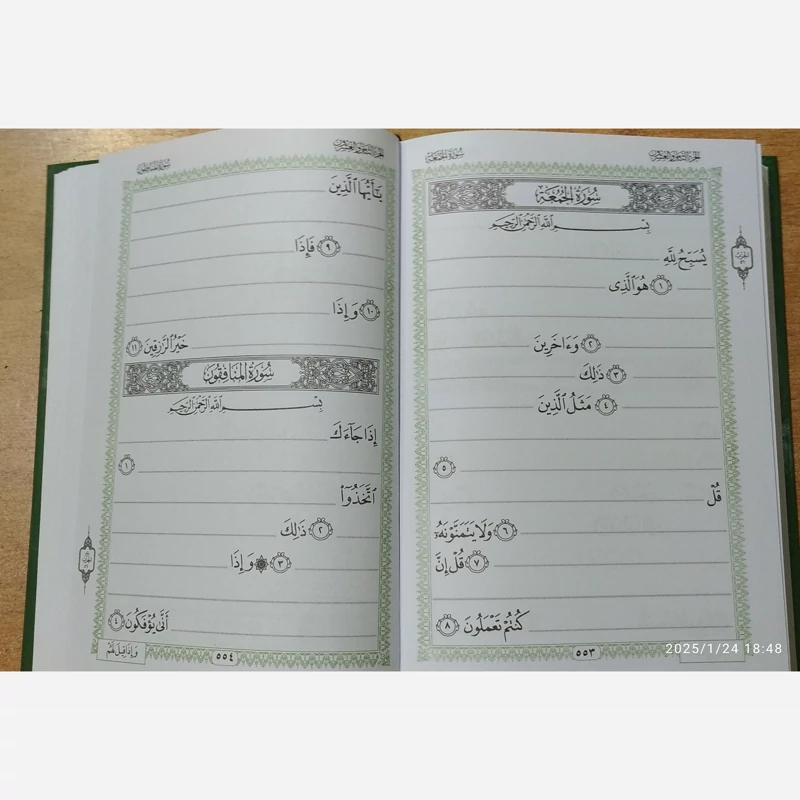 سُورَةُ الجُمُعَةِ
الجزء الثامن والعشرون
سُورَةُ الجُمُعَةِ
بِسْمِ اللَّهِ الرَّحْمَٰنِ الرَّحِيمِ
يُسَبِّحُ لِلَّهِ
١ هُوَ ٱلَّذِى
٢ وَءَاخَرِينَ
٣ ذَٰلِكَ
٤ مَثَلُ ٱلَّذِينَ
٥
قُلْ
٦ وَلَا يَتَمَنَّوْنَهُۥ
٧ قُلْ إِنَّ
كُنتُمْ تَعْمَلُونَ ٨
٥٥٣
2025/1/24 18:48
الجزء الثامن والعشرون
سُورَةُ المنَافِقُون
يَٰٓأَيُّهَا ٱلَّذِينَ
٩ فَإِذَا
١٠ وَإِذَا
خَيْرُ ٱلرَّٰزِقِينَ ١١
سُورَةُ المنَافِقُون
بِسْمِ اللَّهِ الرَّحْمَٰنِ الرَّحِيمِ
إِذَا جَآءَكَ
١
ٱتَّخَذُوٓا۟
٢ ذَٰلِكَ
٣ ۞ وَإِذَا
أَنَّىٰ يُؤْفَكُونَ ٤
وَإِذَا قِيلَ لَهُمْ
٥٥٤